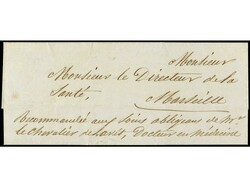 Monsieur
Monsieur le Directeur de la
Santé,
Marseille
Recommandé aux soins obligeans de Mr
le Chevalier de, Docteur en médecine